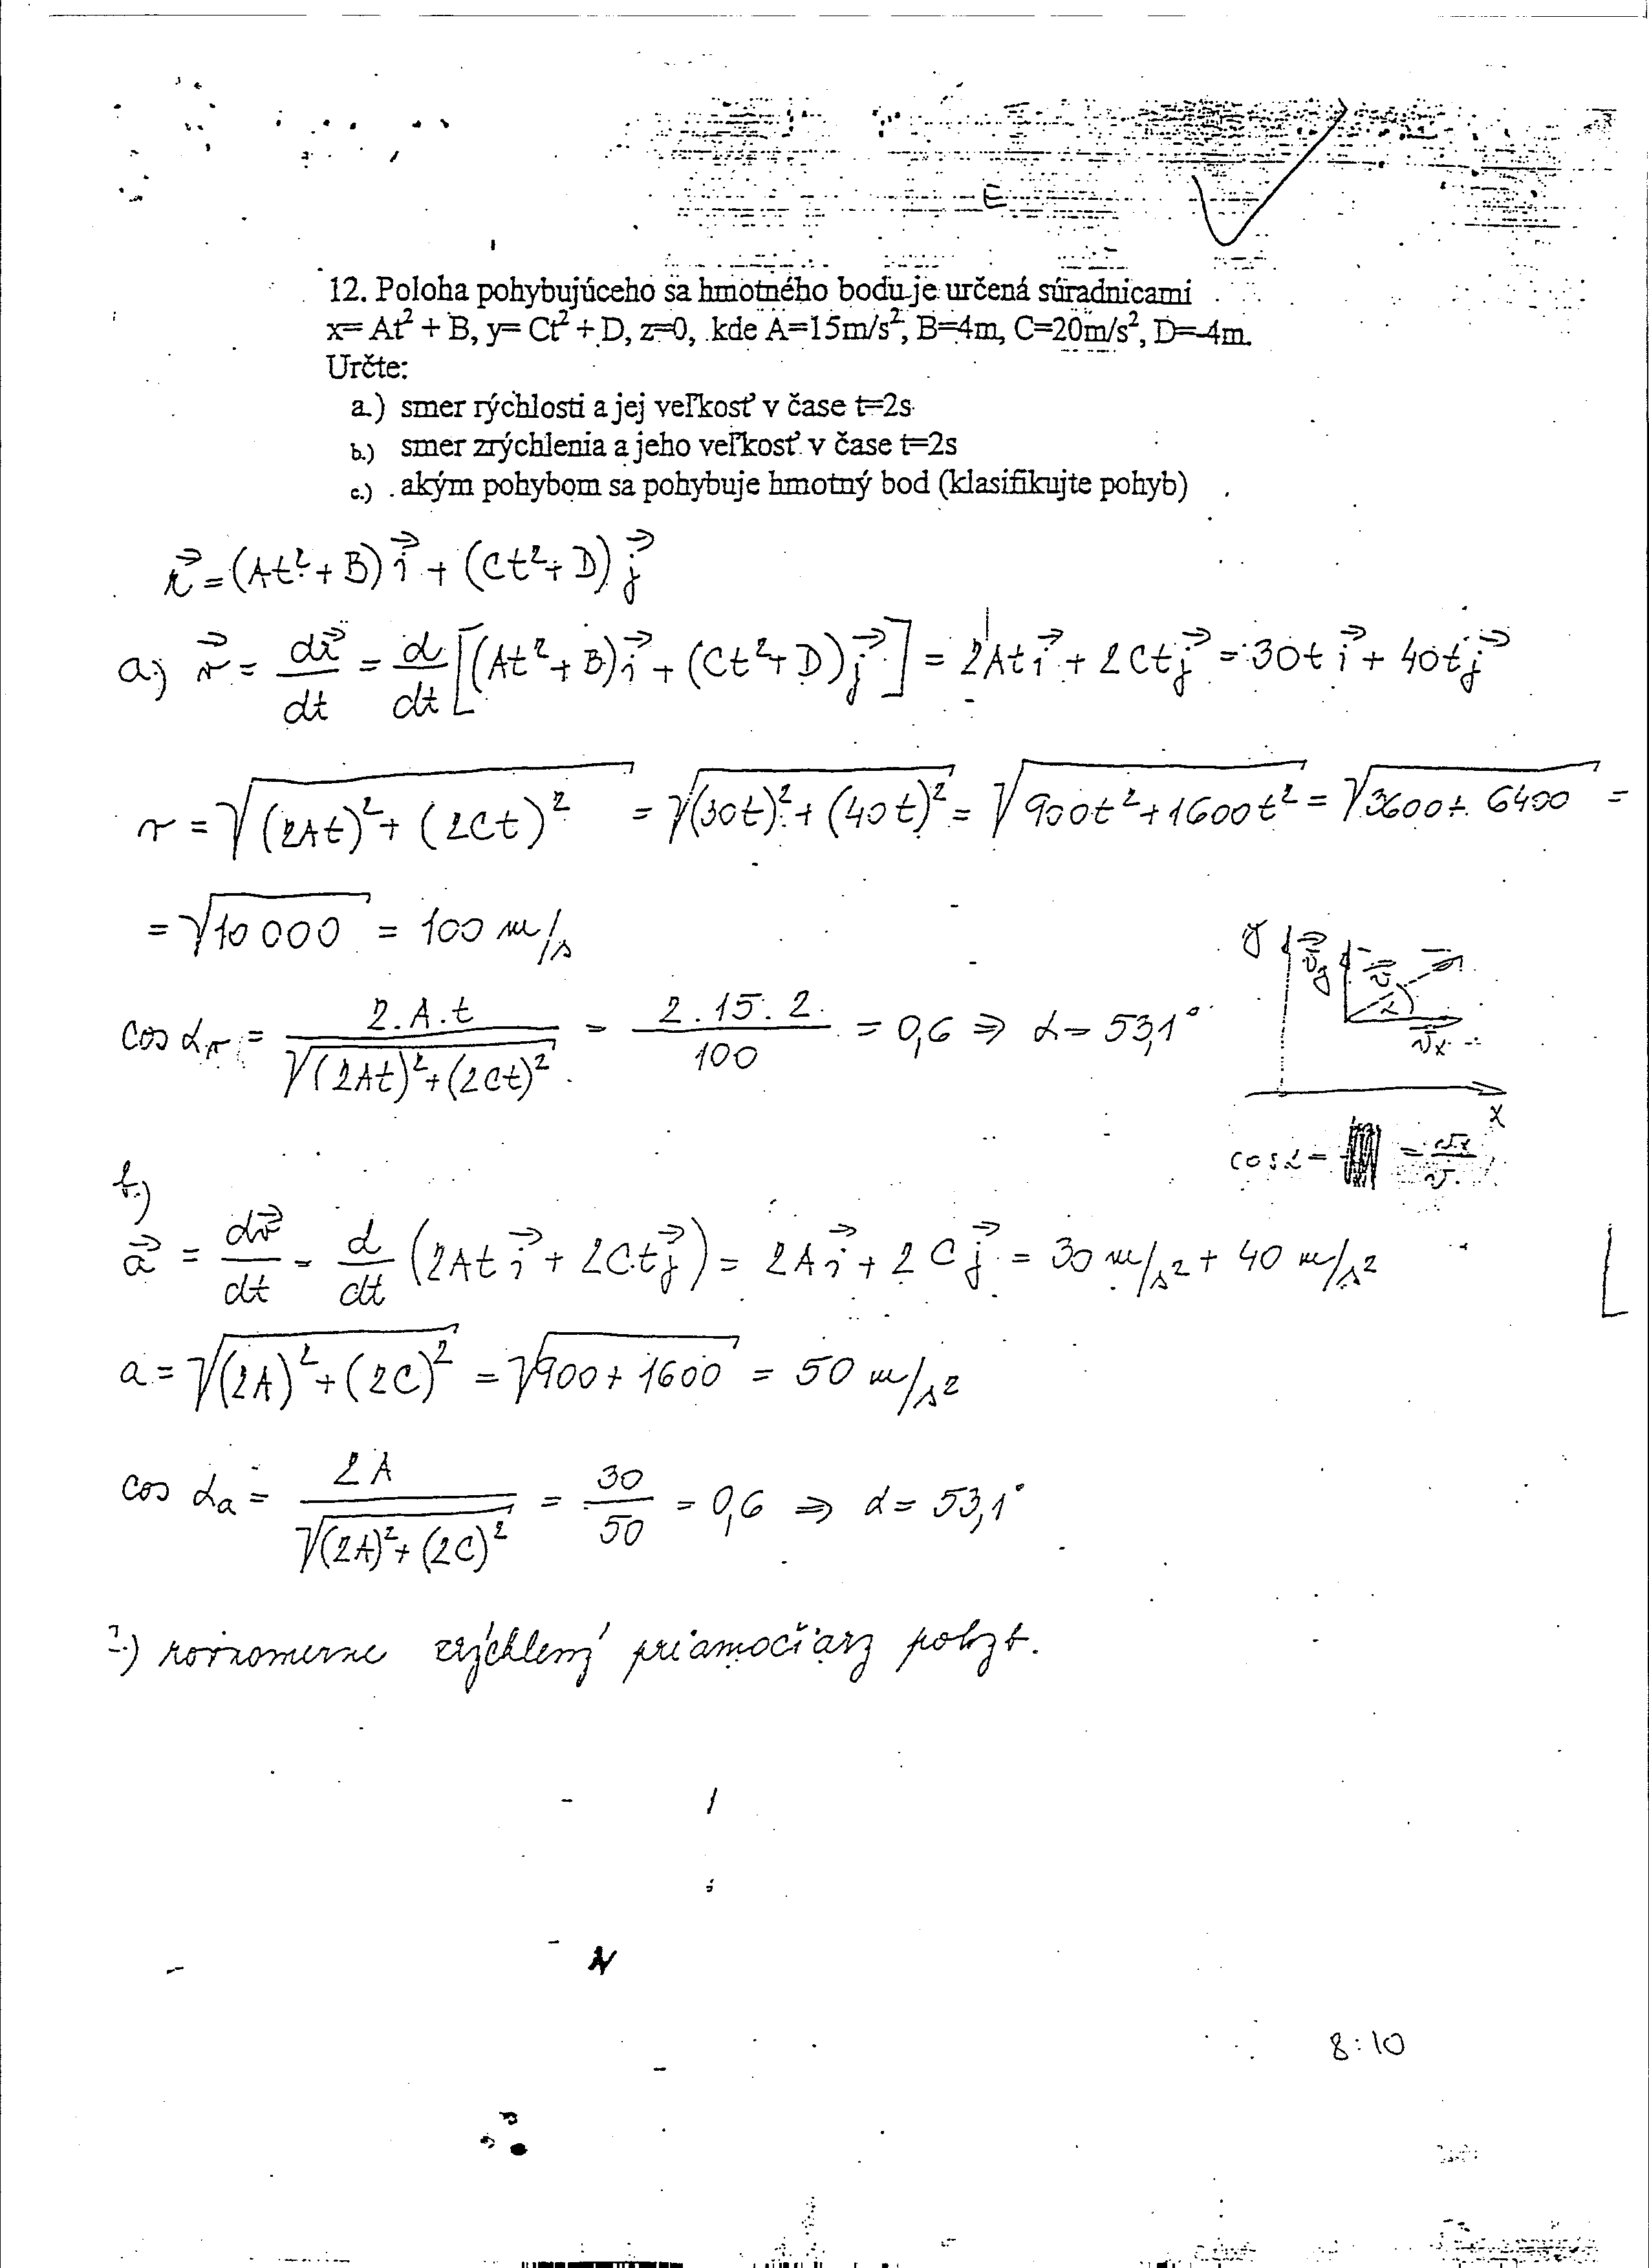 E
12. Poloha pohybujúceho sa hmotného bodu je určená súradnicami
x= At² + B, y= Ct² + D, z=0, kde A=15m/s², B=4m, C=20m/s², D=-4m.
Určte:
a.) smer rýchlosti a jej veľkosť v čase t=2s
b.) smer zrýchlenia a jeho veľkosť v čase t=2s
c.) akým pohybom sa pohybuje hmotný bod (klasifikujte pohyb)
r⃗ = (At² + B) i⃗ + (Ct² + D) j⃗
a.) v⃗ = dr⃗/dt = d/dt [(At² + B) i⃗ + (Ct² + D) j⃗] = 2At i⃗ + 2Ct j⃗ = 30t i⃗ + 40t j⃗
v = √((2At)² + (2Ct)²) = √((30t)² + (40t)²) = √(900t² + 1600t²) = √(3600 + 6400) =
= √10 000 = 100 m/s
y v⃗y v⃗ α v⃗x x
cos αv = 2.A.t / √((2At)² + (2Ct)²) = 2.15.2 / 100 = 0,6 ⇒ α = 53,1°
cos α = = vx/v
b.)
a⃗ = dv⃗/dt = d/dt (2At i⃗ + 2Ct j⃗) = 2A i⃗ + 2C j⃗ = 30 m/s² + 40 m/s²
a = √((2A)² + (2C)²) = √(900 + 1600) = 50 m/s²
cos αa = 2A / √((2A)² + (2C)²) = 30/50 = 0,6 ⇒ α = 53,1°
rovnomerne zrýchlený priamočiary pohyb.
8:10